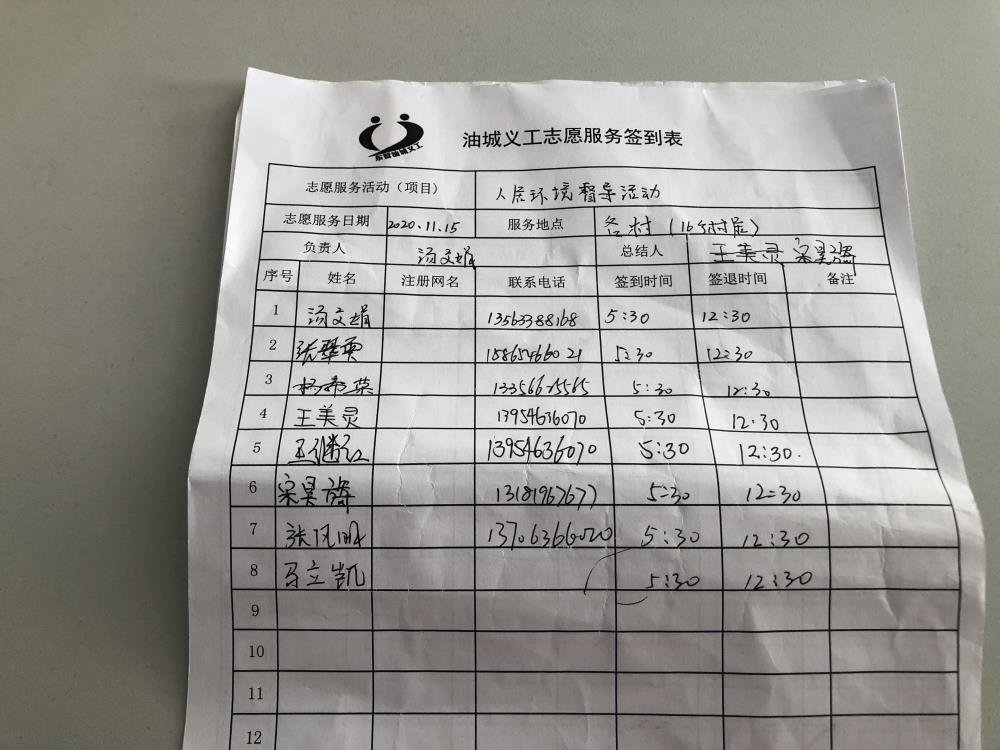 东营油城义工
油城义工志愿服务签到表
志愿服务活动（项目） 人居环境督导活动
志愿服务日期 2020.11.15 服务地点 各村（16个村居）
负责人 汤文娟 总结人 王美灵 宋昊
序号 姓名 注册网名 联系电话 签到时间 签退时间 备注
1 汤文娟 13563388168 5:30 12:30
2 张翠 15865466021 5:30 12:30
3 杨希英 13356625565 5:30 12:30
4 王美灵 13954636070 5:30 12:30
5 王继江 13954636070 5:30 12:30.
6 宋昊 13181967677 5:30 12:30
7 张 明 13706366020 5:30 12:30
8 马立凯 5:30 12:30
9
10
11
12